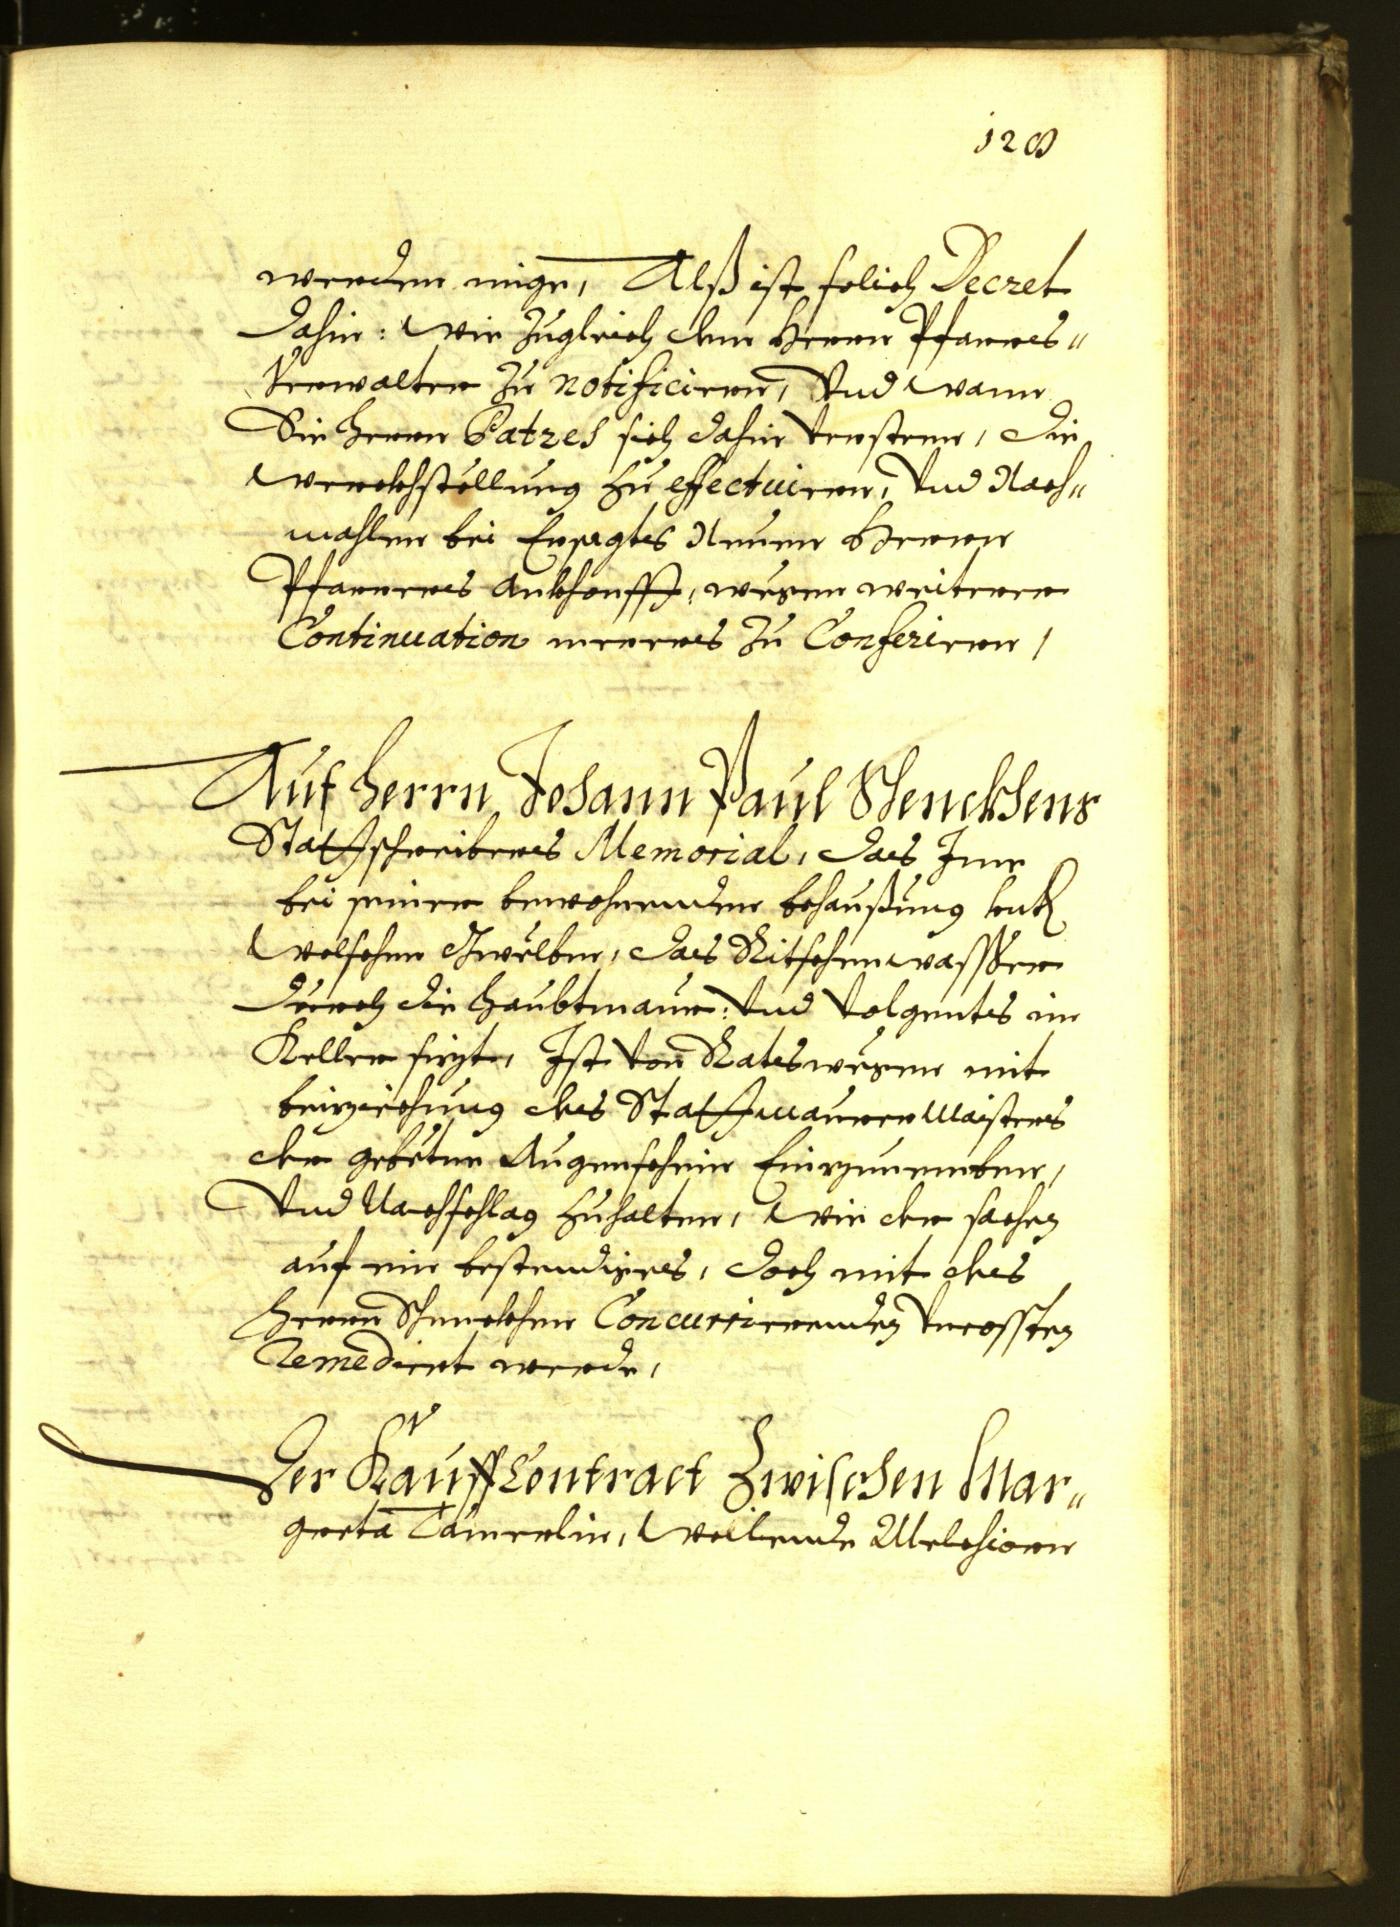 128
werden müge, Alß ist solich Decret
dahin: wie zugleich dem Herrn Pfarrers-
Verwalter zu notificiren, Vnd wann
Die herrn Patres sich dahin verstehen, die
werckhstellung zu effectuiren, Vnd Nach-
mahlen bei Ersagtes Neuen Herrn
Pfarrers ankhonfft, wegen weiterer
Continuation mererers zu Conferiren,
Auf herrn Johann Paul Schenckhens
Stattschreibers Memorial, das Jme
bei seiner bewohnenden behaußung
Welschen Gwelben, das Ritschenwasser
durch die haubtmaur: Vnd Volgents in
Keller sizt, Ist von Rats wegen mit
beiziehung des Statt maurer Maisters
der gebetne Augenschein Einzunemben,
Vnd Rathschlag zuhalten, wie der sachen
auf ein bestendiges, doch mit des
herrn Schenckhen Concurrirenden Vncossten
Remediert werde,
Der Kauff Contract Zwischen Mar-
greta, Weilende Melchiorn